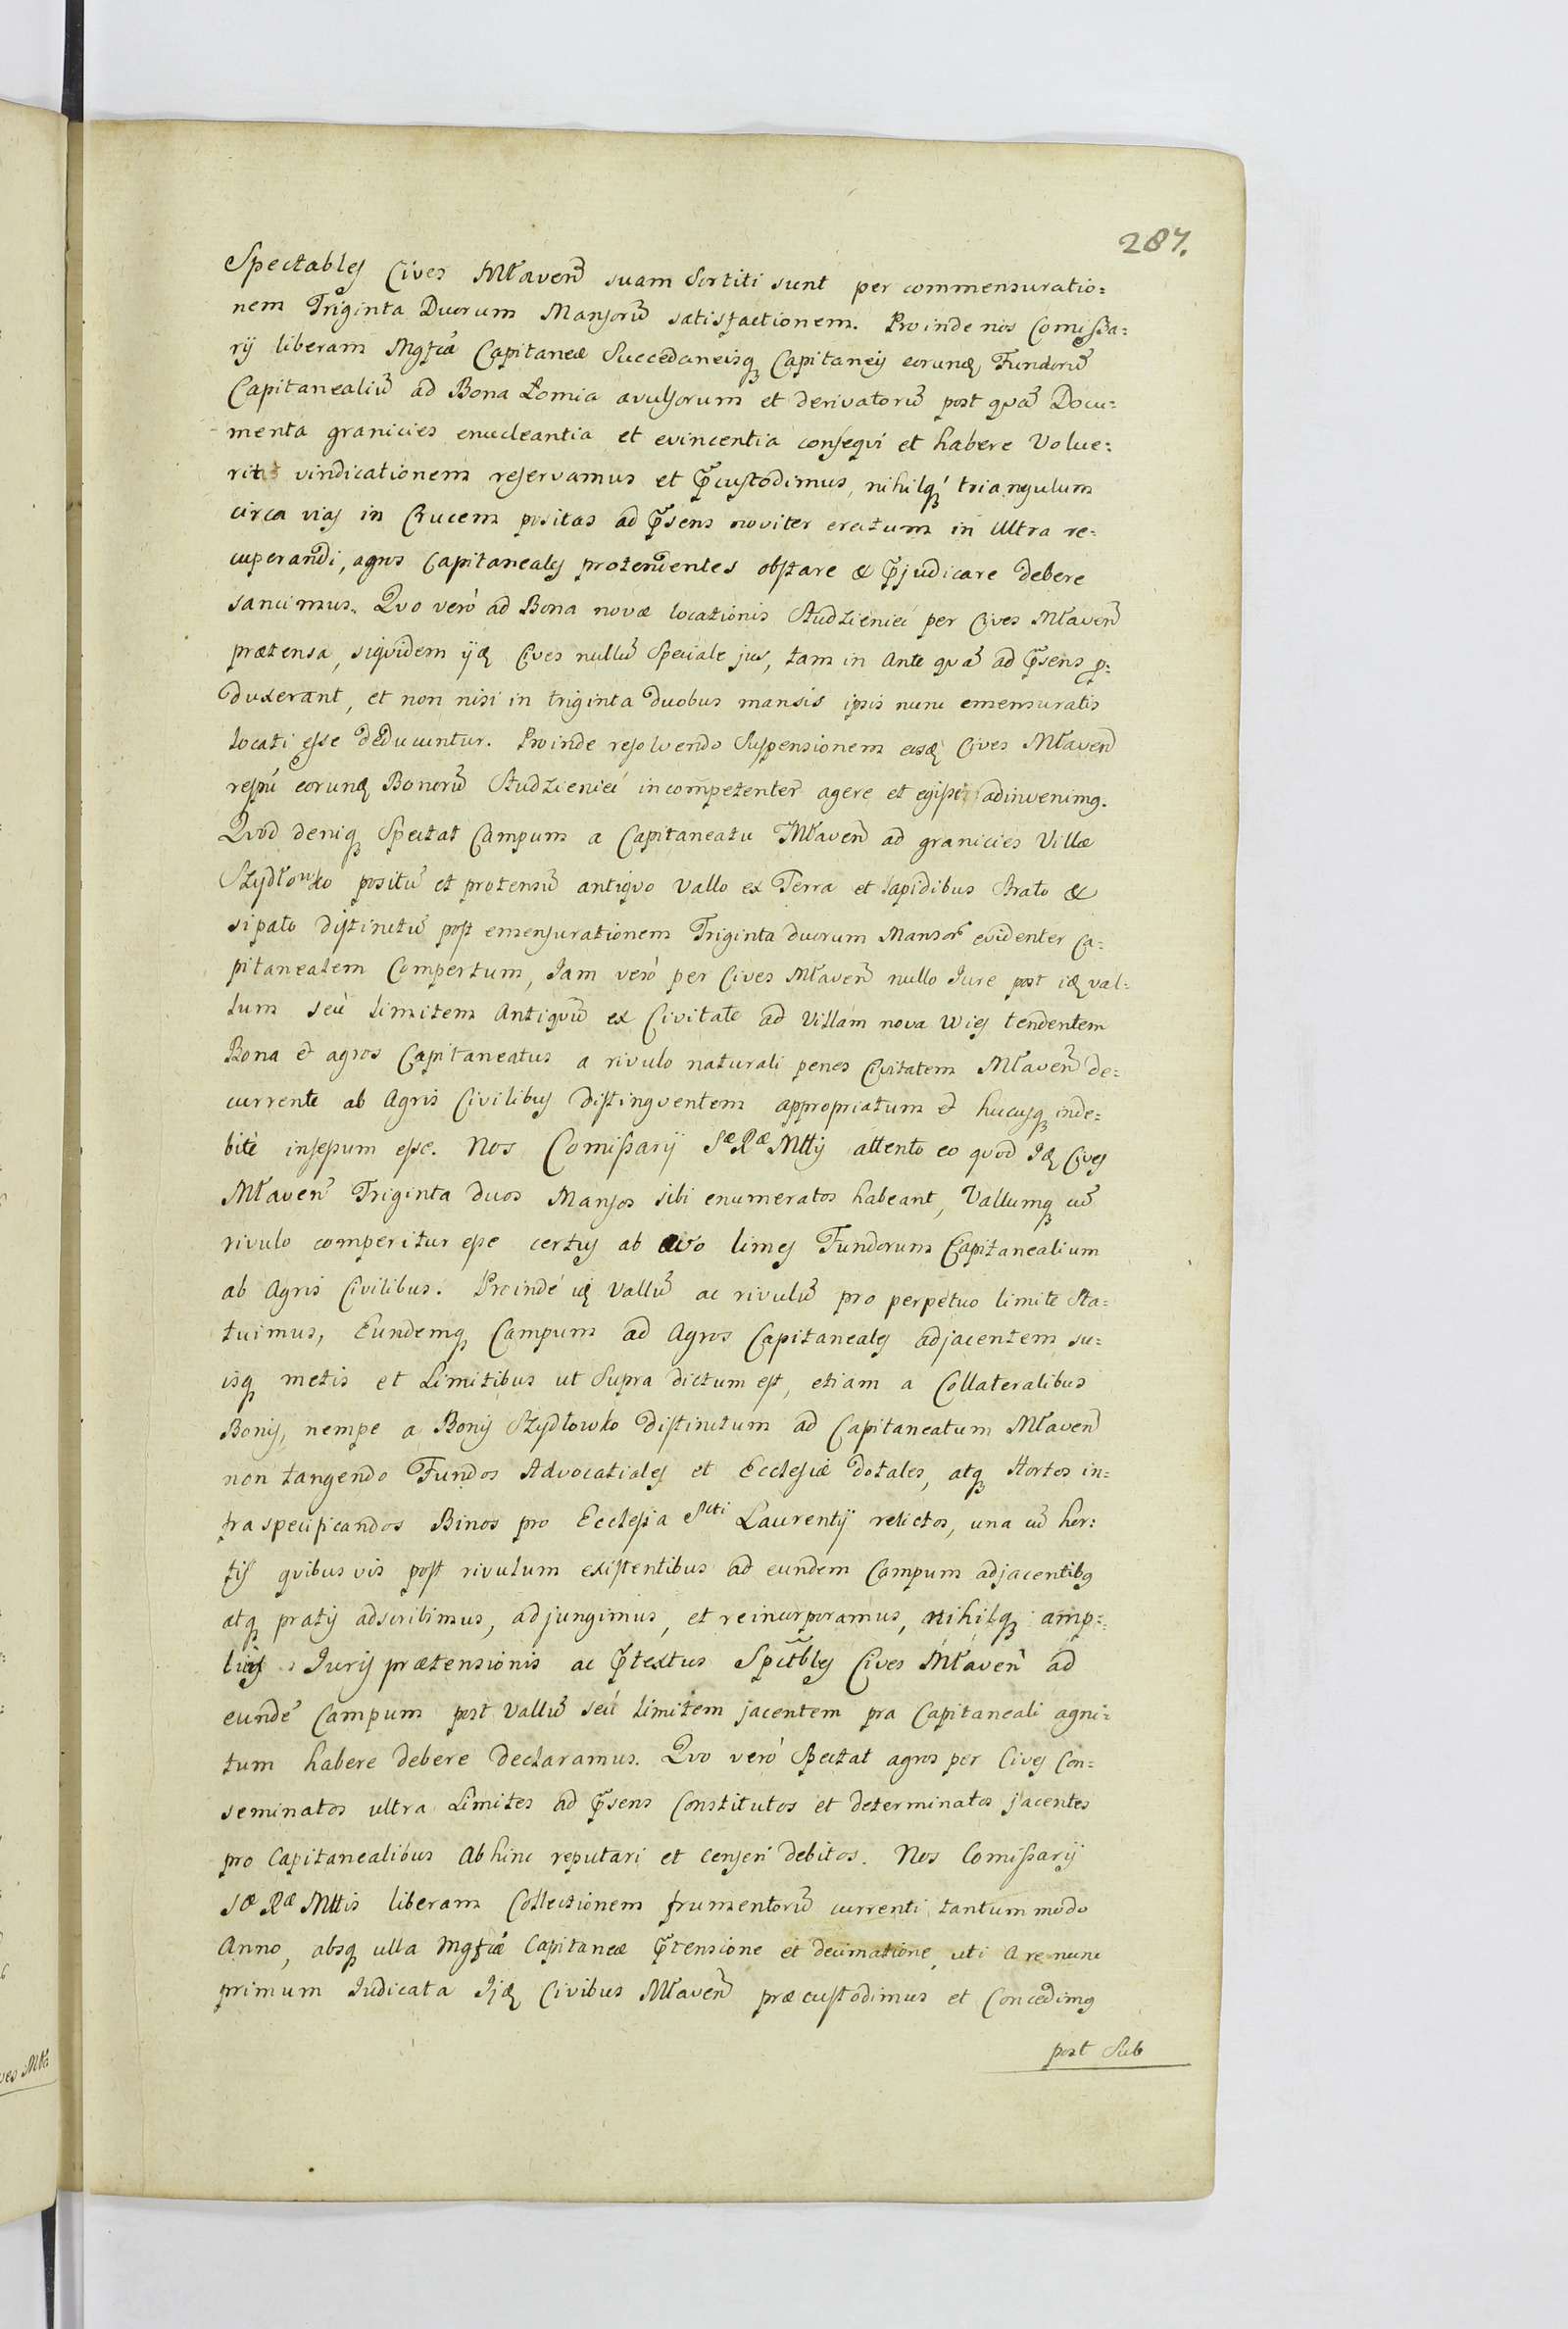 287.
Spectabley Cives Mławen̄ suam Sortiti sunt per commensuratio=
nem Triginta Duorum Mansorū satisfactionem. Proinde nos Comissa=
rÿ liberam Mgficæ Capitaneæ Succedaneisq̨ Capitaneÿ eorunq̨ Fundorū
Capitanealiū ad Bona Łomia avulsorum et derivatorū post quā Docu=
menta granicies enucleantia et evincentia consequi et habere Volue=
rit vindicationem reservamus et p̄custodimus, nihilq̨ triangulum
circa vias in Crucem positas ad p̄sens noviter erectum in Ultra re=
cuperandi, agros Capitanealeſ protendentes obstare & p̄judicare debere
sancimus. Qvo verò ad Bona novæ locationis Studzieniec per Cives Mławen̄
prætensa, siqvidem ijdē Cives nullū Speciale jus, tam in Ante quā ad p̄sens p=
duxerant, et non nisi in triginta Duobus mansis ipsis nunc emensuratis
locati esse deducuntur. Proinde resolvendo Suspensionem eosdē Cives Mławen̄
respū eorundē Bonorū Studzieniec incompetenter agere et egisse adinvenimq.
Qvod deniq̨ Spectat Campum a Capitaneatu Mławen̄ ad granicies Villæ
Szydłowko positū et protensū antiqvo vallo ex Terra et lapidibus Strato &
sipato distinctū post emensurationem Triginta duorum Mansor̄ evidenter Ca=
pitanealem Compertum, Jam verò per Cives Mławen̄ nullo Jure post idē val=
lum seù limitem Antiqvū ex Civitate ad Villam nova Wieſ tendentem
Bona et agros Capitaneatus a rivulo naturali penes Civitatem Mławen̄ de=
currente ab Agris Civilibus Distingventem appropriatum et hucusq̨ inde=
bitè insessum esse. Nos Comissarÿ Sæ Ræ Mttÿ attento eo quod Jdē Cives
Mławen̄ Triginta duos Mansos sibi enumeratos habeant, Vallumq̨ cū
rivulo comperitur esse certus ab ævo limes Fundorum Capitanealium
ab Agris Civilibus. Proindè idē Vallū ac rivulū pro perpetuo limite Sta=
tuimus, Eundemq̨ Campum ad Agros Capitanealeſ adjacentem su=
isq̨ metis et Limitibus ut Supra dictum est, etiam a Collateralibus
Bonis, nempe a Bonis Szydłowko Distinctum ad Capitaneatum Mławen̄
non tangendo Fundos Advocatiales et Ecclesiæ Dotales, atq̨ Hortos in=
fra specificandos Binos pro Ecclesia Scti Laurentÿ relictos, una cū hor=
tis qvibusvis post rivulum existentibus ad eundem Campum adjacentibq
atq̨ pratis adscribimus, adjungimus, et reincorporamus, nihilq̨ amp=
lius Juris prætensionis ac p̄textus Spctbles Cives Mławen̄ ad
eundē Campum post Vallū seù limitem jacentem pra Capitaneali agni=
tum habere debere Declaramus. Qvo verò Spectat agros per Cives Con=
seminatos ultra Limites ad p̄sens Constitutos et determinatos jacentes
pro Capitanealibus Abhinc reputari et censeri debitos. Nos Comissarÿ
Sæ Ræ Mttis liberam Collectionem frumentorū currenti tantummodo
Anno, absq̨ ulla Mgficæ Capitaneæ p̄tensione et decimatione, uti A re nunc
primum Judicata Jjsdē Civibus Mławen̄ præcustodimus et Concedimq
post Sub